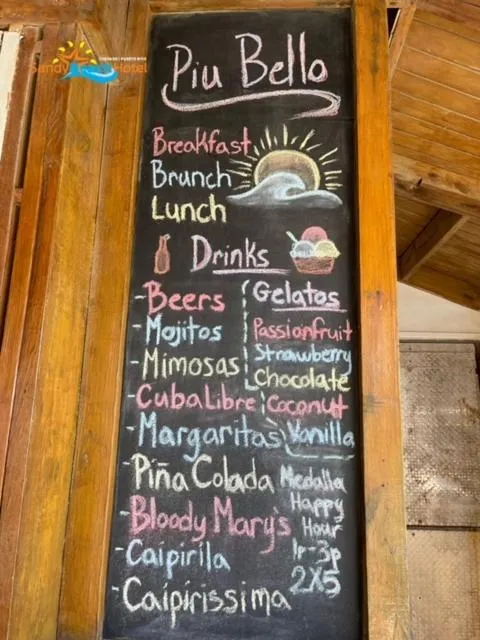 Sandy Hotel
Piu Bello
Breakfast
Brunch
Lunch
Drinks
-Beers
-Mojitos
-Mimosas
-CubaLibre
-Margaritas
-Piña Colada
-Bloody Mary's
-Caipirila
-Caipirissima
Gelatos
Passionfruit
Strawberry
Chocolate
Coconut
Vanilla
Medalla
Happy
Hour
1p-3p
2X5